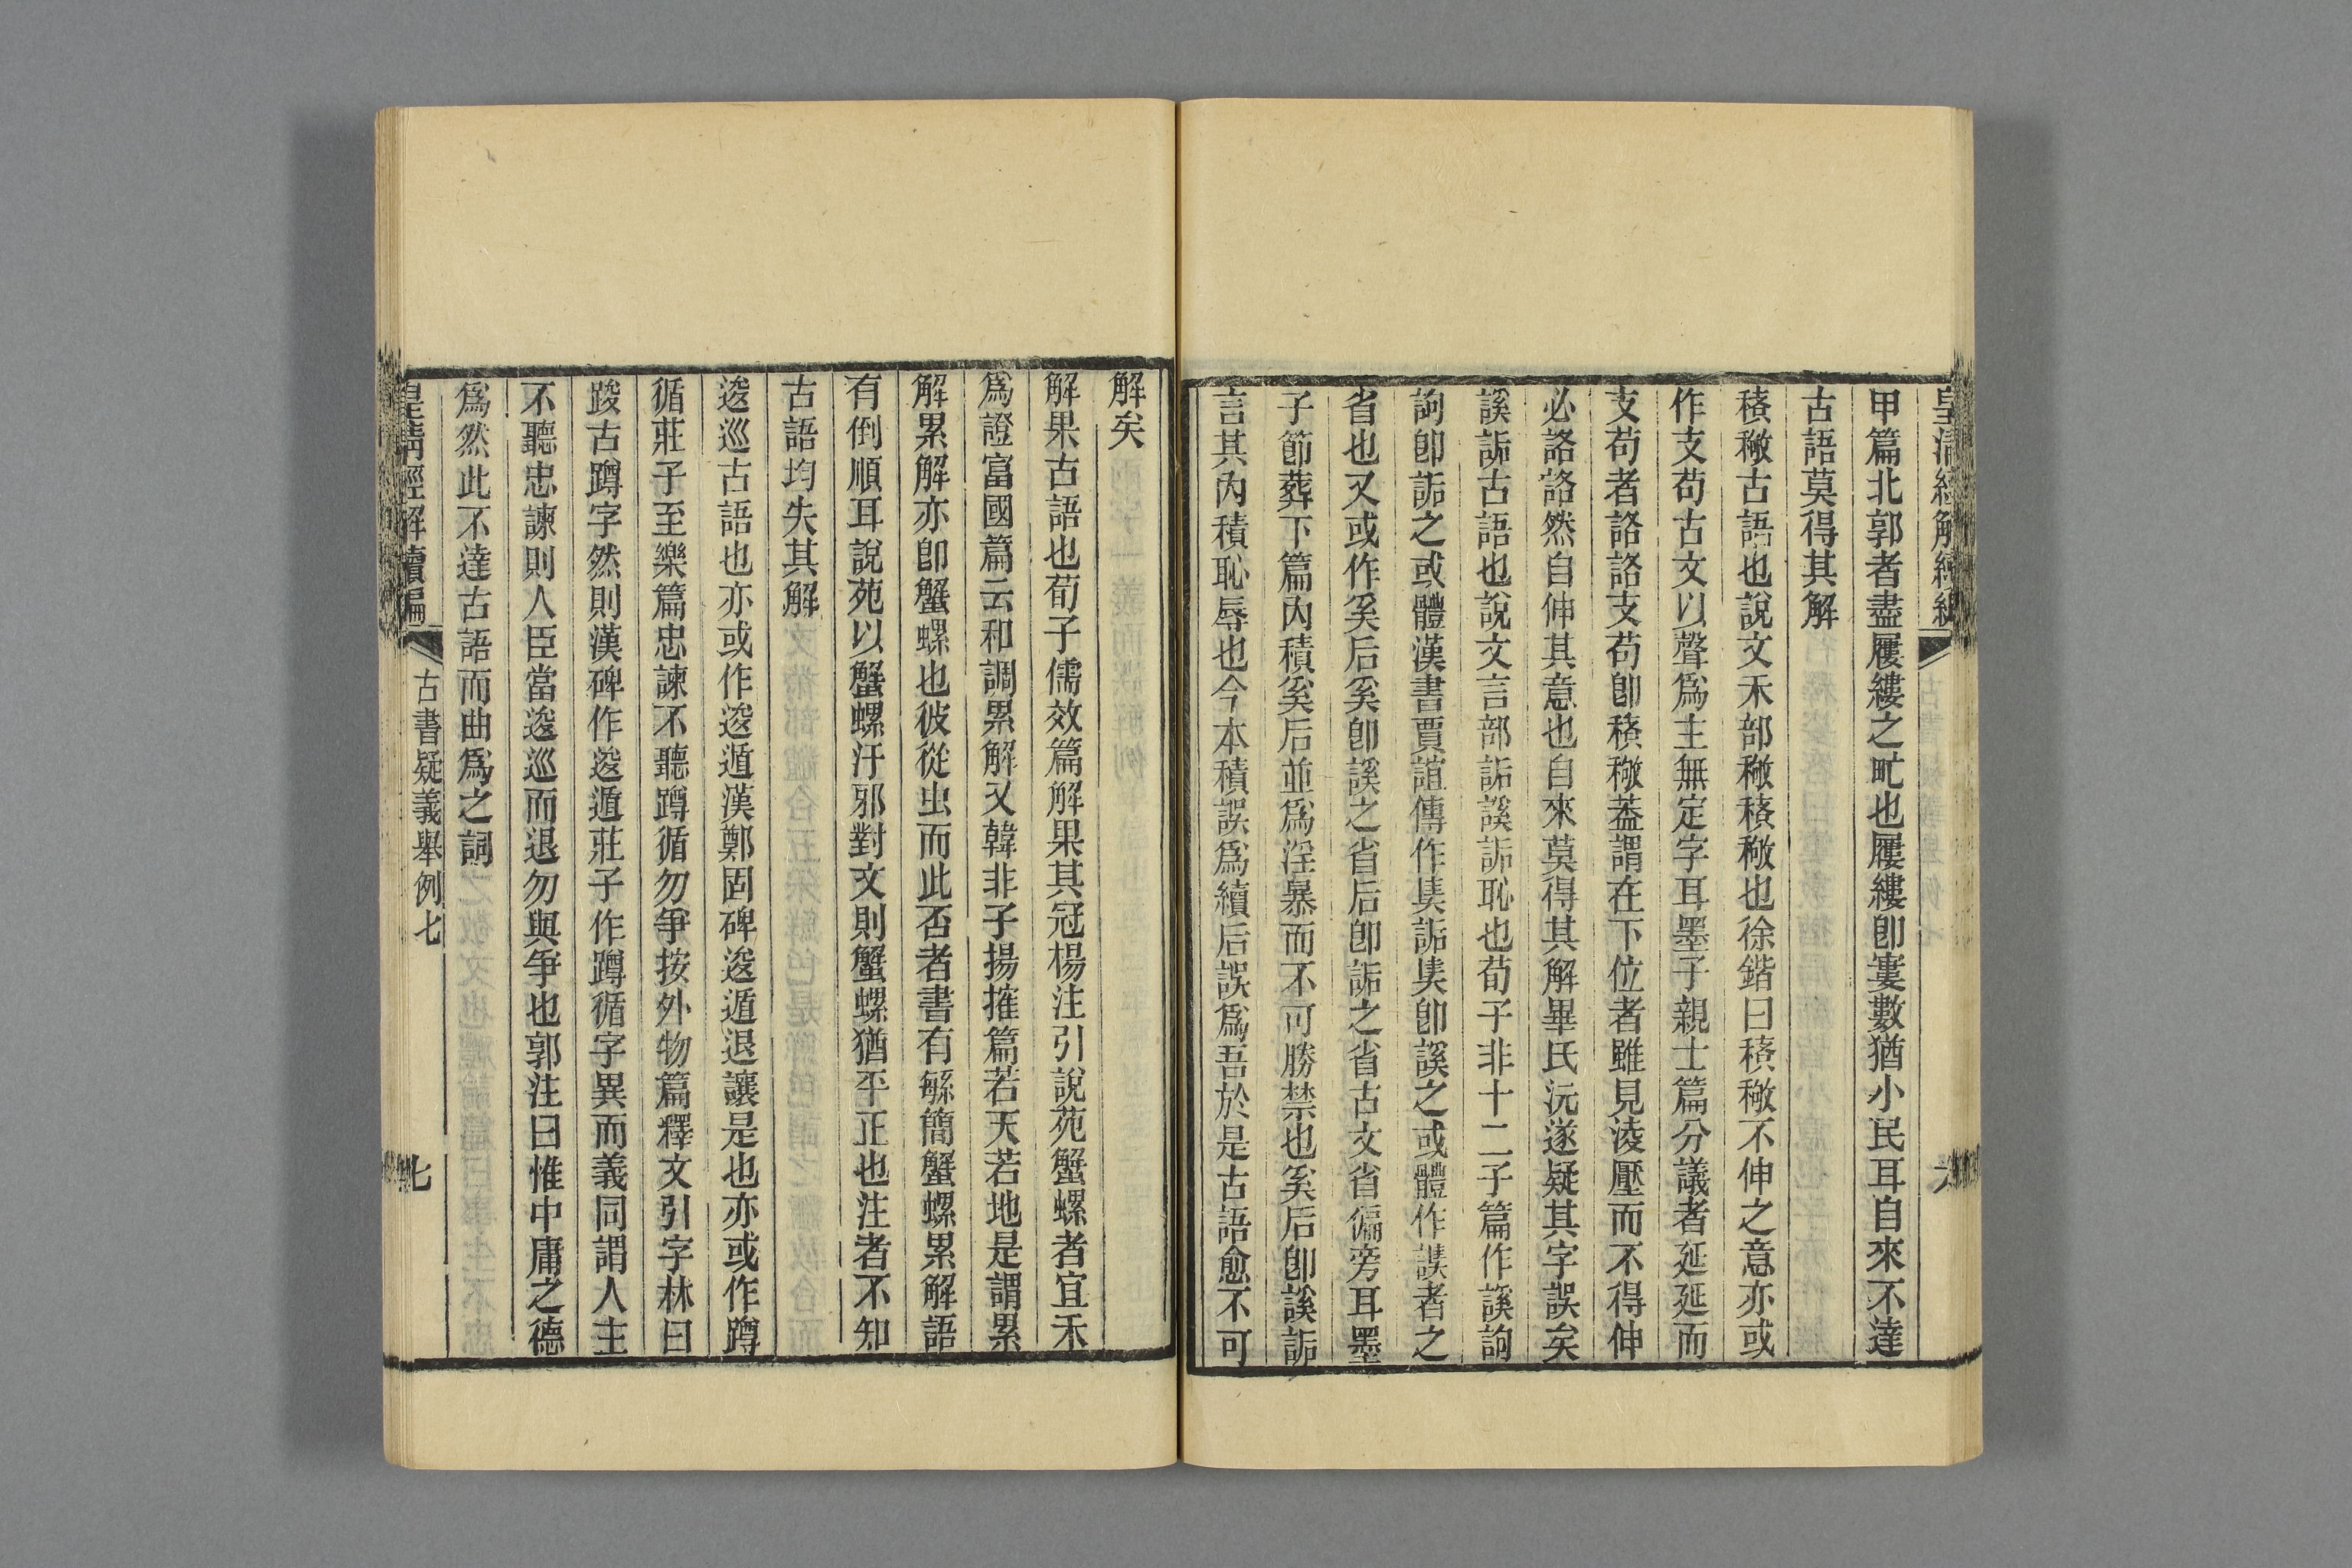 皇清經解續編
甲篇北郭者盡屨縷之甿也屨縷卽寠數猶小民耳自來不達
古語莫得其解
䅩𥠻古語也說文禾部𥠻䅩𥠻也徐鍇曰䅩𥠻不伸之意亦或
作支苟古文以聲爲主無定字耳墨子親士篇分議者延延而
支苟者詻詻支苟卽䅩𥠻葢謂在下位者雖見淩壓而不得伸
必詻詻然自伸其意也自來莫得其解畢氏沅遂疑其字誤矣
謑詬古語也說文言部詬謑詬恥也荀子非十二子篇作謑詢
詢卽詬之或體漢書賈誼傳作奊詬奊卽謑之或體作謨者之
省也又或作奚后奚卽謑之省后卽詬之省古文省偏旁耳墨
子節葬下篇內積奚后並爲淫暴而不可勝禁也奚后卽謑詬
言其內積恥辱也今本積誤爲續后誤爲吾於是古語愈不可
解矣
解果古語也荀子儒效篇解果其冠楊注引說苑蟹螺者宜禾
爲證富國篇云和調累解又韓非子揚搉篇若天若地是謂累
解累解亦卽蟹螺也彼從虫而此否者書有緐簡蟹螺累解語
有倒順耳說苑以蟹螺汙邪對文則蟹螺猶平正也注者不知
古語均失其解
逡巡古語也亦或作逡遁漢鄭固碑逡遁退讓是也亦或作蹲
循莊子至樂篇忠諫不聽蹲循勿爭按外物篇釋文引字林曰
踆古蹲字然則漢碑作逡遁莊子作蹲循字異而義同謂人主
不聽忠諫則人臣當逡巡而退勿與爭也郭注曰惟中庸之德
爲然此不達古語而曲爲之詞
皇清經解續編 古書疑義舉例七 七